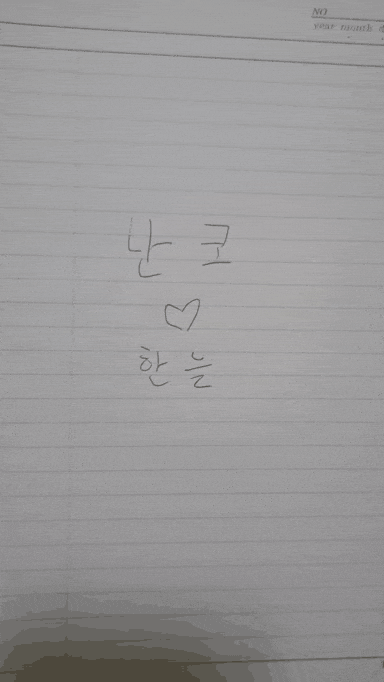 NO
year month d
난 코
♡
한 늘